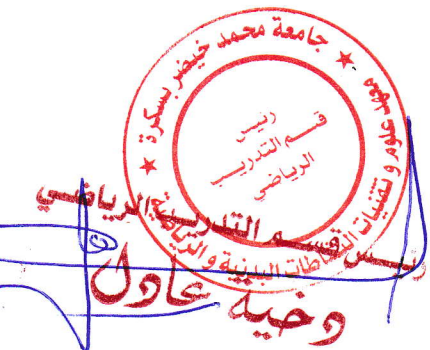 جامعة محمد خيضر بسكرة
معهد علوم و تقنيات النشاطات البدنية و الرياضية
رئيس
قسم التدريب
الرياضي
رئيس قسم التدريب الرياضي
دخية عادل